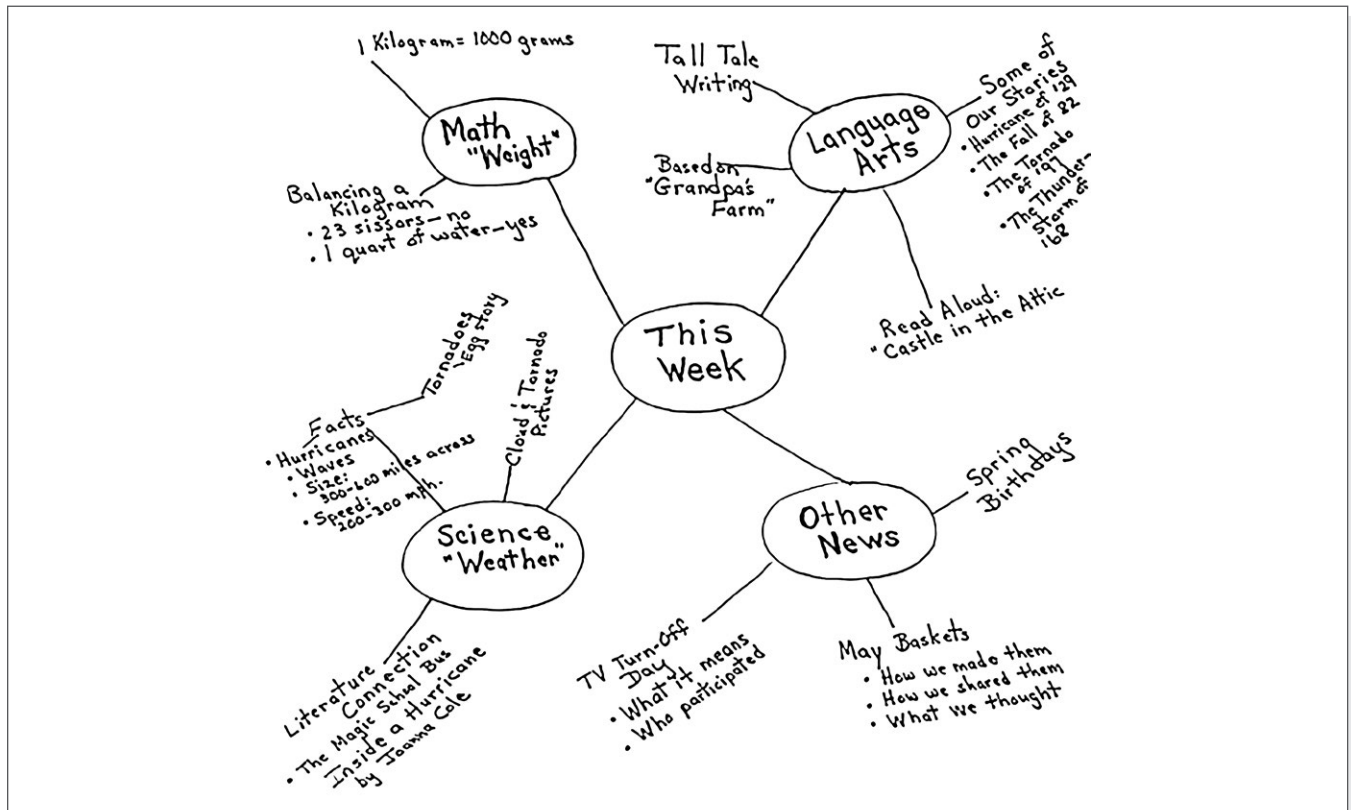 1 Kilogram = 1000 grams
Math
"Weight"
Balancing a
Kilogram
• 23 sissors – no
• 1 quart of water – yes
Tall Tale
Writing
Language
Arts
Based on
"Grandpa's
Farm"
Some of
Our Stories
• Hurricane of '29
• The Fall of 82
• The Tornado
of '97
• The Thunder-
Storm of
'68
Read Aloud:
"Castle in the Attic
This
Week
Tornadoes
- Egg story
Facts
• Hurricanes
• Waves
• Size:
300-600 miles across
• Speed:
200-300 mph.
Cloud & Tornado
Pictures
Science
"Weather"
Literature
Connection
• The Magic School Bus
Inside a Hurricane
by Joanna Cole
Other
News
Spring
Birthdays
TV Turn-Off
Day
• What it means
• Who participated
May Baskets
• How we made them
• How we shared them
• What we thought